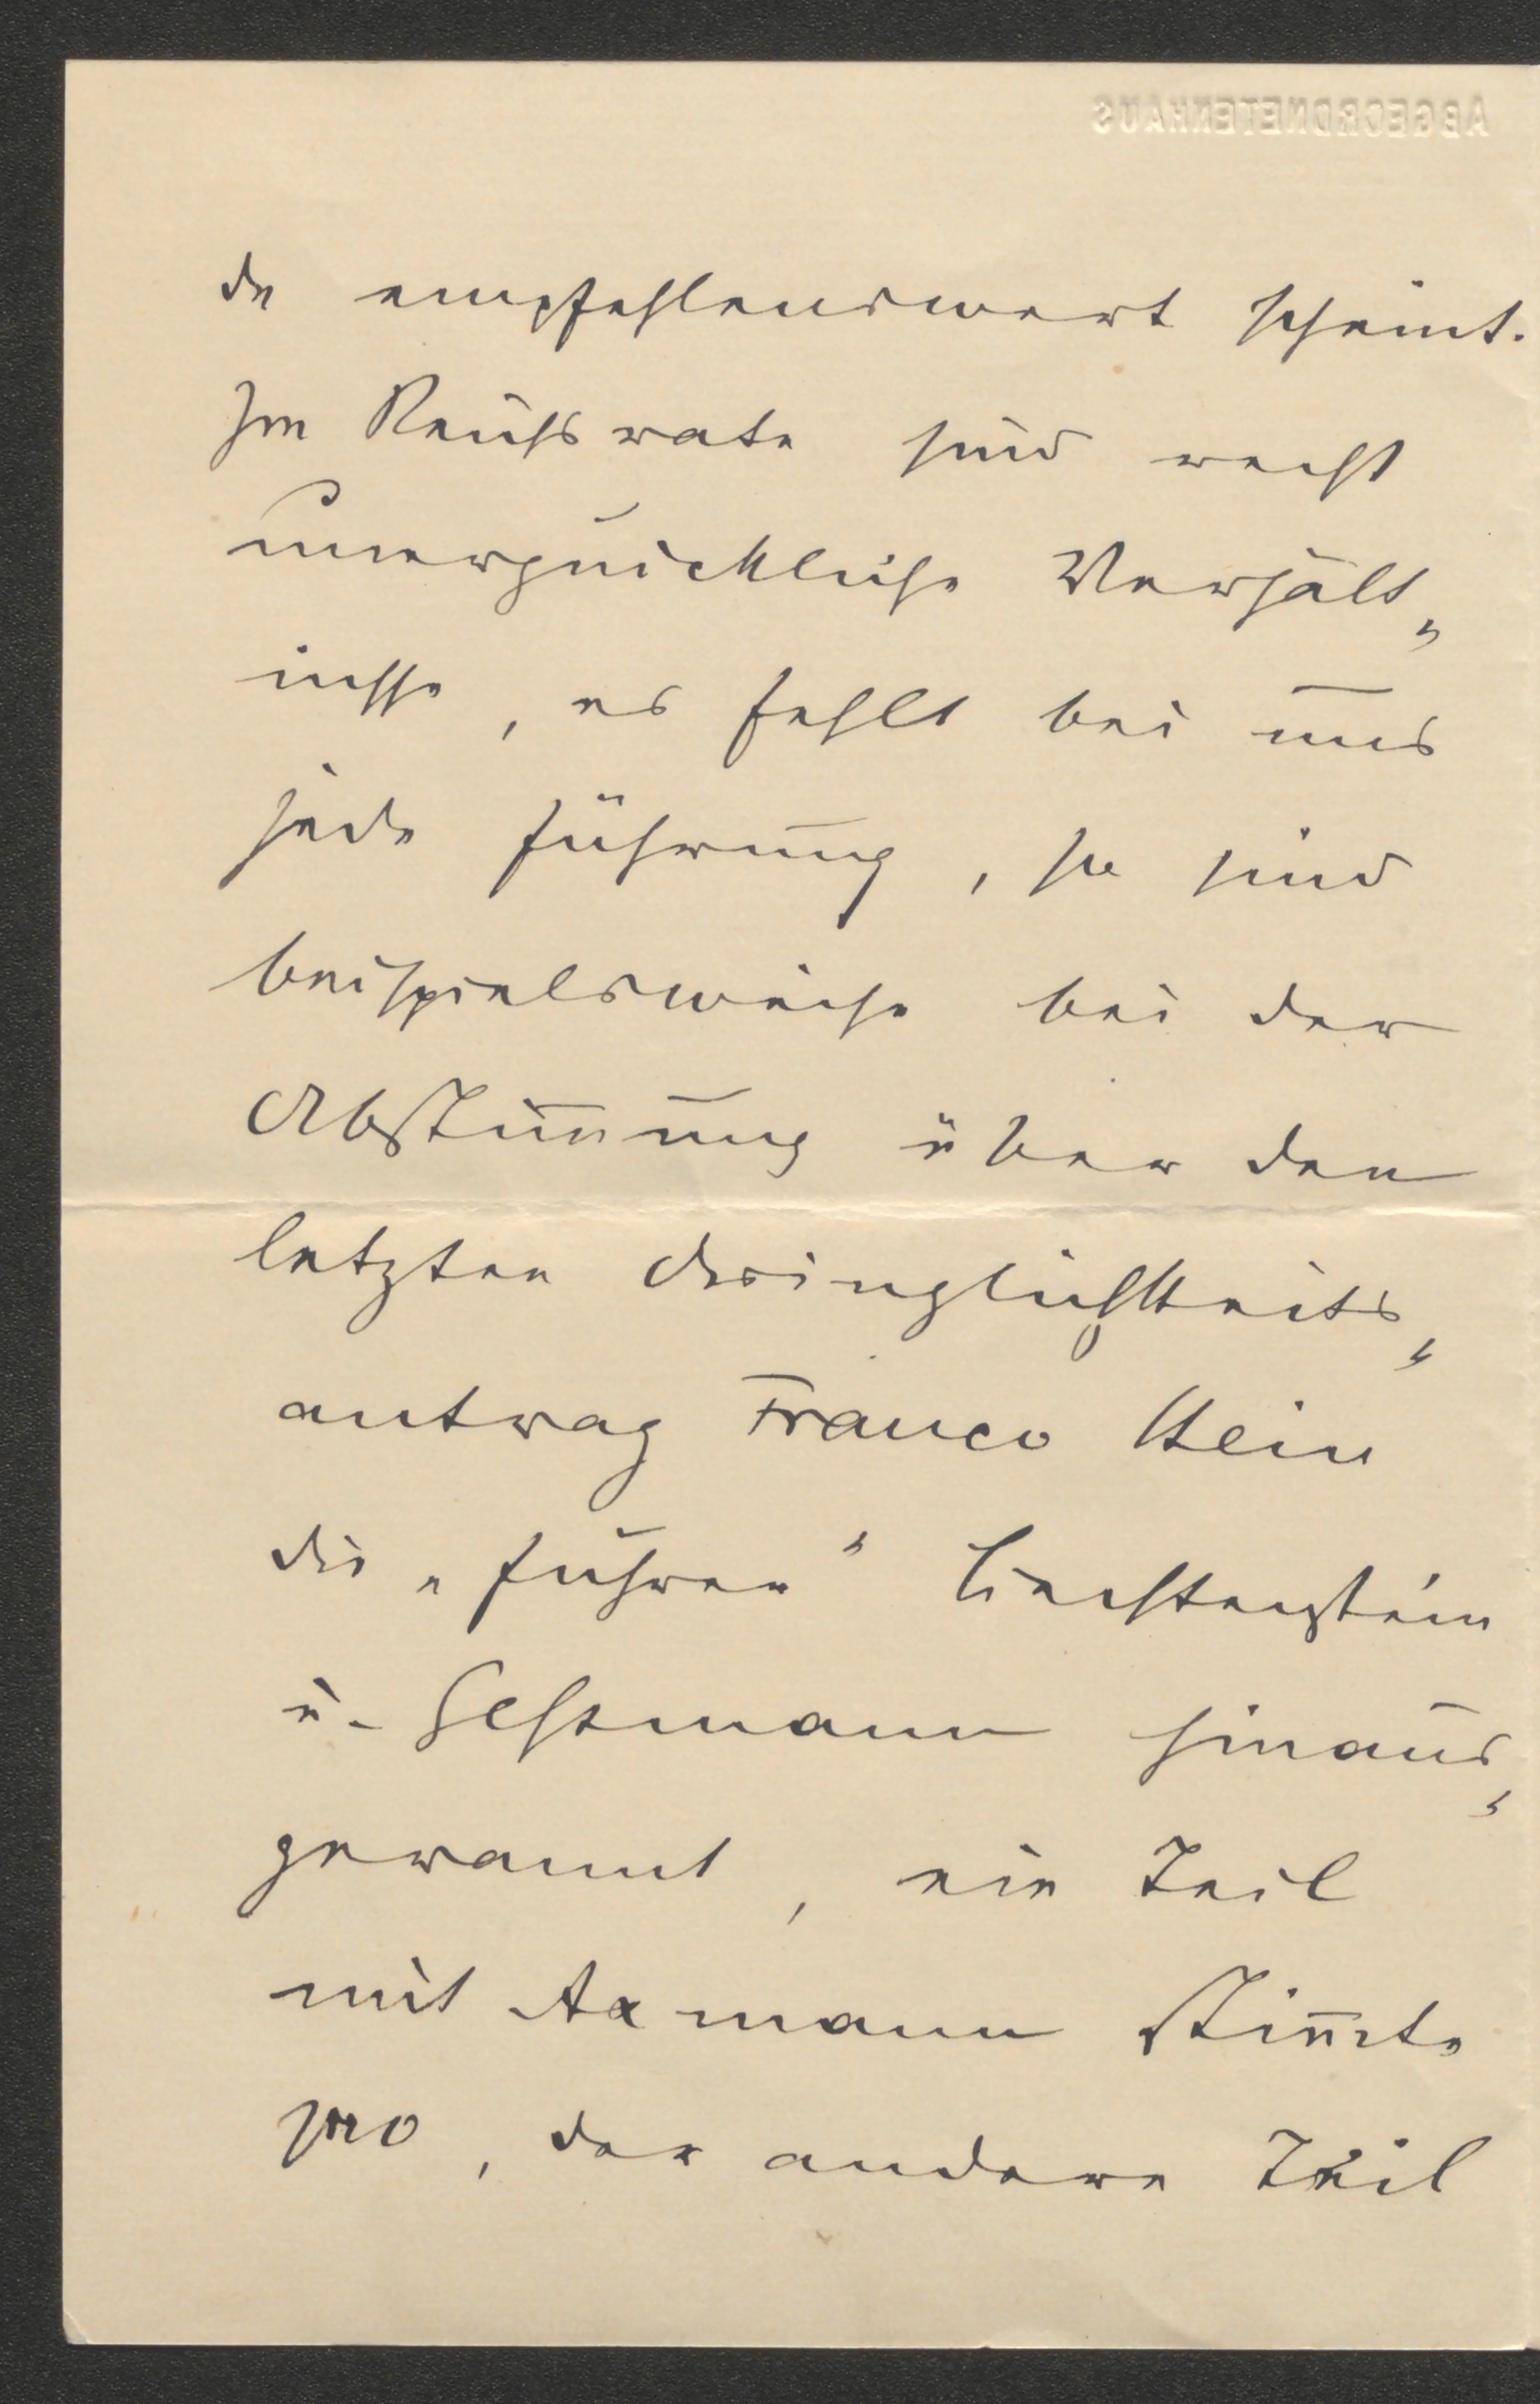 ABGEORDNETENHAUS
de empfehlenswert scheint.
Im Reichsrate sind recht
unerquickliche Verhält„
nisse, es fehlt bei uns
jede Führung, so sind
beispielsweise bei der
Abstim̅ung über den
letzten Dringlichkeits„
antrag Franco Stein
die „Führer“ Liechtenstein
u. Gessmann hinaus„
gerannt, ein Teil
mit Axmann stim̅te
pro, der andere Teil